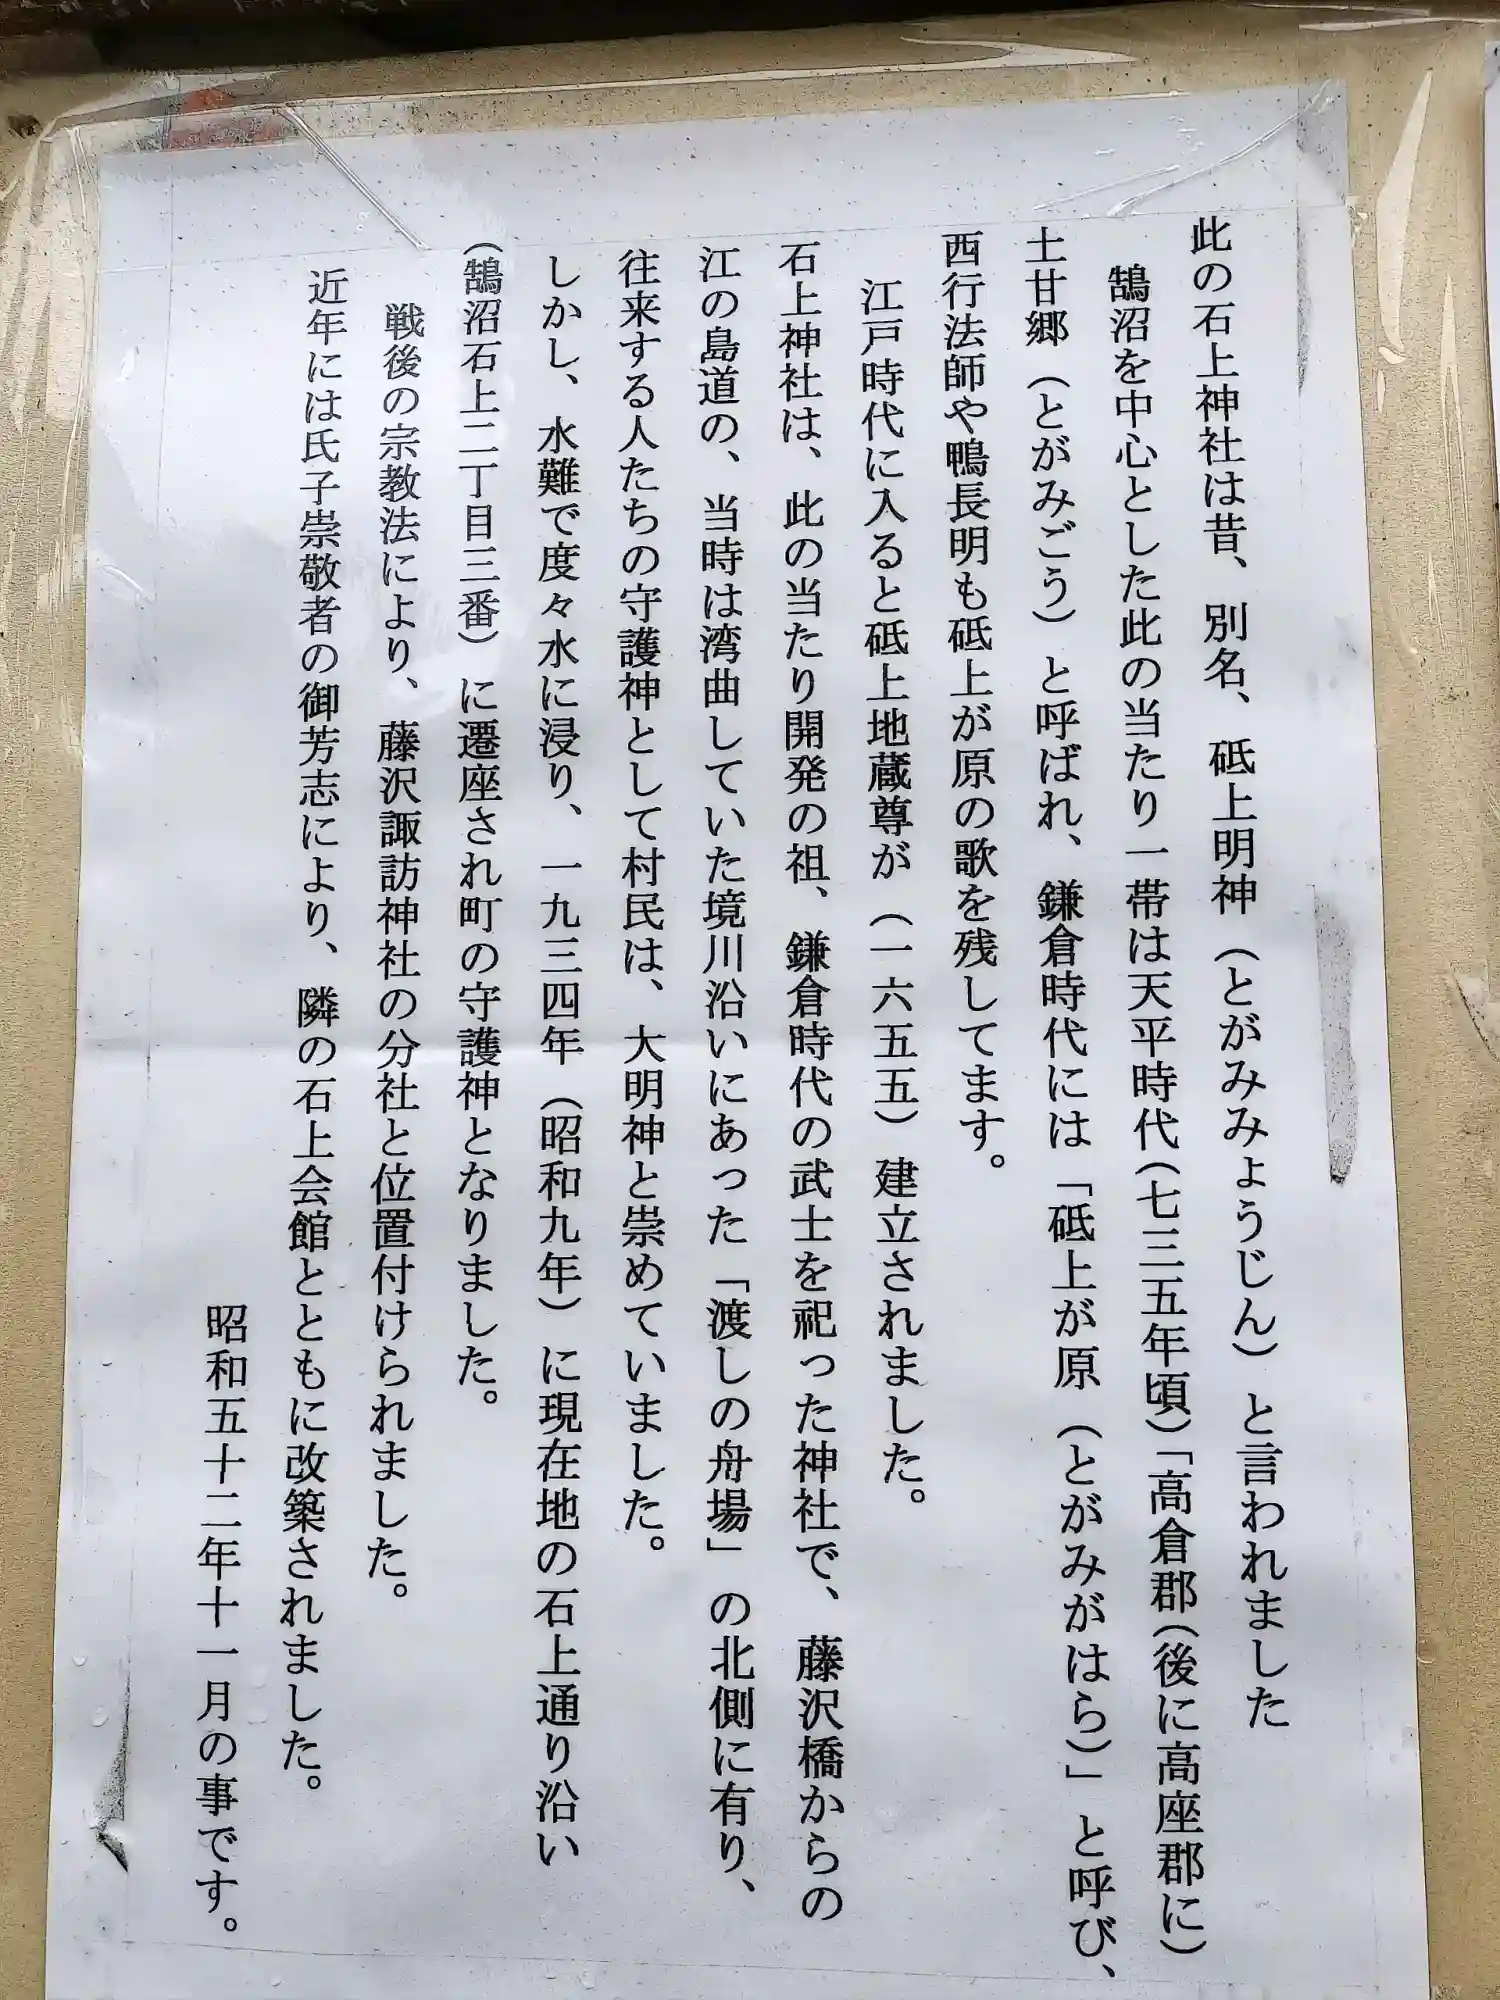 此の石上神社は昔、別名、砥上明神（とがみみょうじん）と言われました
鵠沼を中心とした此の当たり一帯は天平時代(七三五年頃)「高倉郡(後に高座郡に)
土甘郷（とがみごう）と呼ばれ、鎌倉時代には「砥上が原（とがみがはら）」と呼び、
西行法師や鴨長明も砥上が原の歌を残してます。
江戸時代に入ると砥上地蔵尊が（一六五五）建立されました。
石上神社は、此の当たり開発の祖、鎌倉時代の武士を祀った神社で、藤沢橋からの
江の島道の、当時は湾曲していた境川沿いにあった「渡しの舟場」の北側に有り、
往来する人たちの守護神として村民は、大明神と崇めていました。
しかし、水難で度々水に浸り、一九三四年（昭和九年）に現在地の石上通り沿い
（鵠沼石上二丁目三番）に遷座され町の守護神となりました。
戦後の宗教法により、藤沢諏訪神社の分社と位置付けられました。
近年には氏子崇敬者の御芳志により、隣の石上会館とともに改築されました。
昭和五十二年十一月の事です。